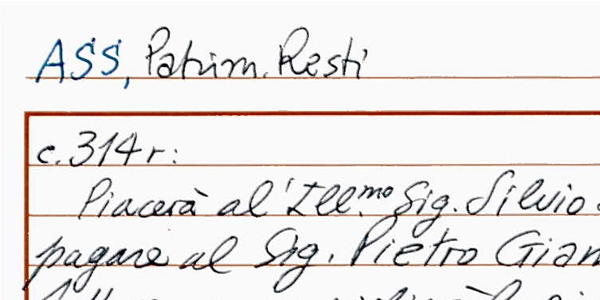 ASS, Patrim. Resti
c. 314 r:
Piacerà al'Ill.mo Sig. Silvio
pagare al Sig. Pietro Gian